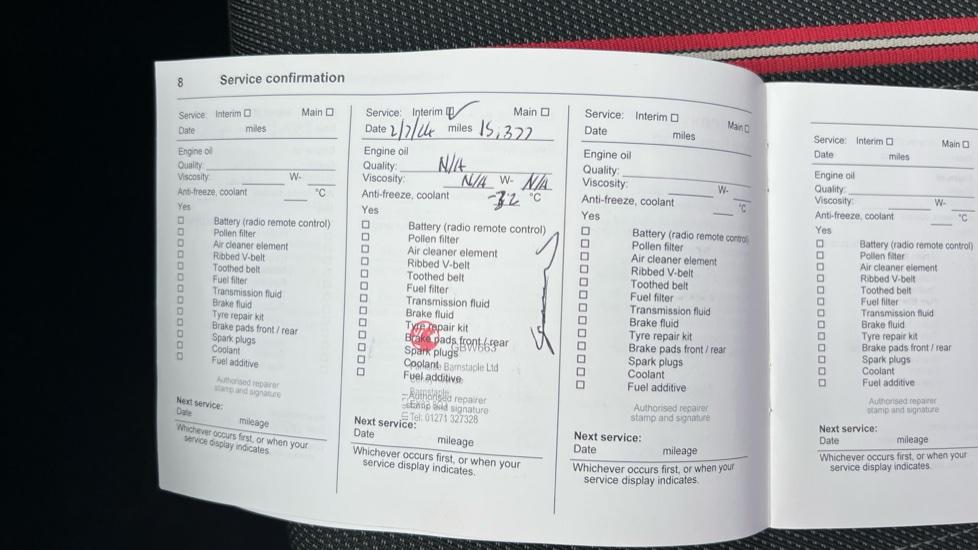 8 Service confirmation
Service: Interim ☐ Main ☐
Date miles
Engine oil
Quality:
Viscosity: W-
Anti-freeze, coolant °C
Yes
☐ Battery (radio remote control)
☐ Pollen filter
☐ Air cleaner element
☐ Ribbed V-belt
☐ Toothed belt
☐ Fuel filter
☐ Transmission fluid
☐ Brake fluid
☐ Tyre repair kit
☐ Brake pads front / rear
☐ Spark plugs
☐ Coolant
☐ Fuel additive
Authorised repairer
stamp and signature
Next service:
Date mileage
Whichever occurs first, or when your
service display indicates.
Service: Interim ☑ Main ☐
Date 2/7/24 miles 15,377
Engine oil
Quality: N/A
Viscosity: N/A W- N/A
Anti-freeze, coolant -32 °C
Yes
☐ Battery (radio remote control)
☐ Pollen filter
☐ Air cleaner element
☐ Ribbed V-belt
☐ Toothed belt
☐ Fuel filter
☐ Transmission fluid
☐ Brake fluid
☐ Tyre repair kit
☐ Brake pads front / rear
GBW663
☐ Spark plugs
☐ Coolant
Barnstaple Ltd
☐ Fuel additive
Barnstaple
Authorised repairer
stamp and signature
Tel: 01271 327328
Next service:
Date mileage
Whichever occurs first, or when your
service display indicates.
Service: Interim ☐ Main ☐
Date miles
Engine oil
Quality:
Viscosity: W-
Anti-freeze, coolant °C
Yes
☐ Battery (radio remote control)
☐ Pollen filter
☐ Air cleaner element
☐ Ribbed V-belt
☐ Toothed belt
☐ Fuel filter
☐ Transmission fluid
☐ Brake fluid
☐ Tyre repair kit
☐ Brake pads front / rear
☐ Spark plugs
☐ Coolant
☐ Fuel additive
Authorised repairer
stamp and signature
Next service:
Date mileage
Whichever occurs first, or when your
service display indicates.
Service: Interim ☐ Main ☐
Date miles
Engine oil
Quality:
Viscosity: W-
Anti-freeze, coolant °C
Yes
☐ Battery (radio remote control)
☐ Pollen filter
☐ Air cleaner element
☐ Ribbed V-belt
☐ Toothed belt
☐ Fuel filter
☐ Transmission fluid
☐ Brake fluid
☐ Tyre repair kit
☐ Brake pads front / rear
☐ Spark plugs
☐ Coolant
☐ Fuel additive
Authorised repairer
stamp and signature
Next service:
Date mileage
Whichever occurs first, or when your
service display indicates.